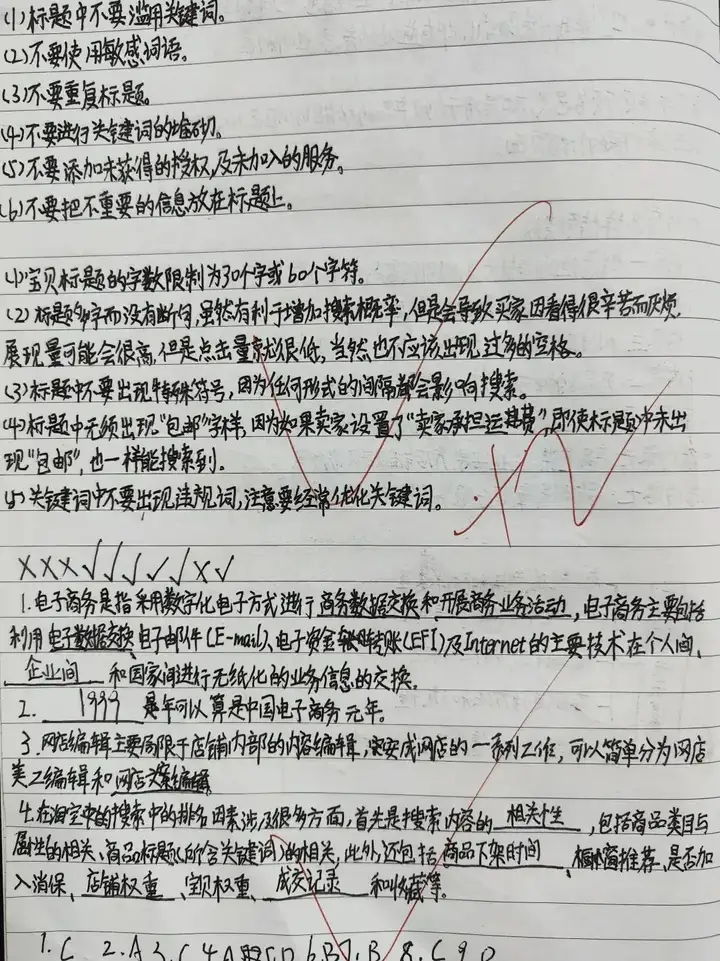 (1)标题中不要滥用关键词。
(2)不要使用敏感词语。
(3)不要重复标题。
(4)不要进行关键词的堆砌。
(5)不要添加未获得的授权,及未加入的服务。
(6)不要把不重要的信息放在标题上。
(1)宝贝标题的字数限制为30个字或60个字符。
(2)标题多字而没有断句,虽然有利于增加搜索概率,但是会导致买家因看得很辛苦而厌烦,
展现量可能会很高,但是点击量就很低,当然也不应该出现过多的空格。
(3)标题中不要出现特殊符号,因为任何形式的间隔都会影响搜索。
(4)标题中无须出现"包邮"字样,因为如果卖家设置了"卖家承担运费",即使标题中未出
现"包邮",也一样能搜索到。
(5)关键词中不要出现违规词,注意要经常优化关键词。
×××√√√√√×√
1.电子商务是指采用数字化电子方式进行商务数据交换和开展商务业务活动,电子商务主要包括
利用电子数据交换、电子邮件(E-mail)、电子资金转账(EFI)及Internet的主要技术在个人间、
企业间和国家间进行无纸化的业务信息的交换。
2. 1999 是年可以算是中国电子商务元年。
3.网店编辑主要局限于店铺内部的内容编辑,要完成网店的一系列工作,可以简单分为网店
美工编辑和网店文案编辑
4.在淘宝中的搜索中的排名因素涉及很多方面,首先是搜索内容的 相关性 ,包括商品类目与
属性的相关、商品标题(所含关键词)的相关,此外,还包括 商品下架时间 、橱窗推荐、是否加
入消保、店铺权重、宝贝权重、成交记录 和收藏等。
1.C 2.A 3.C 4.A D 6.B 7.B 8.C 9.D